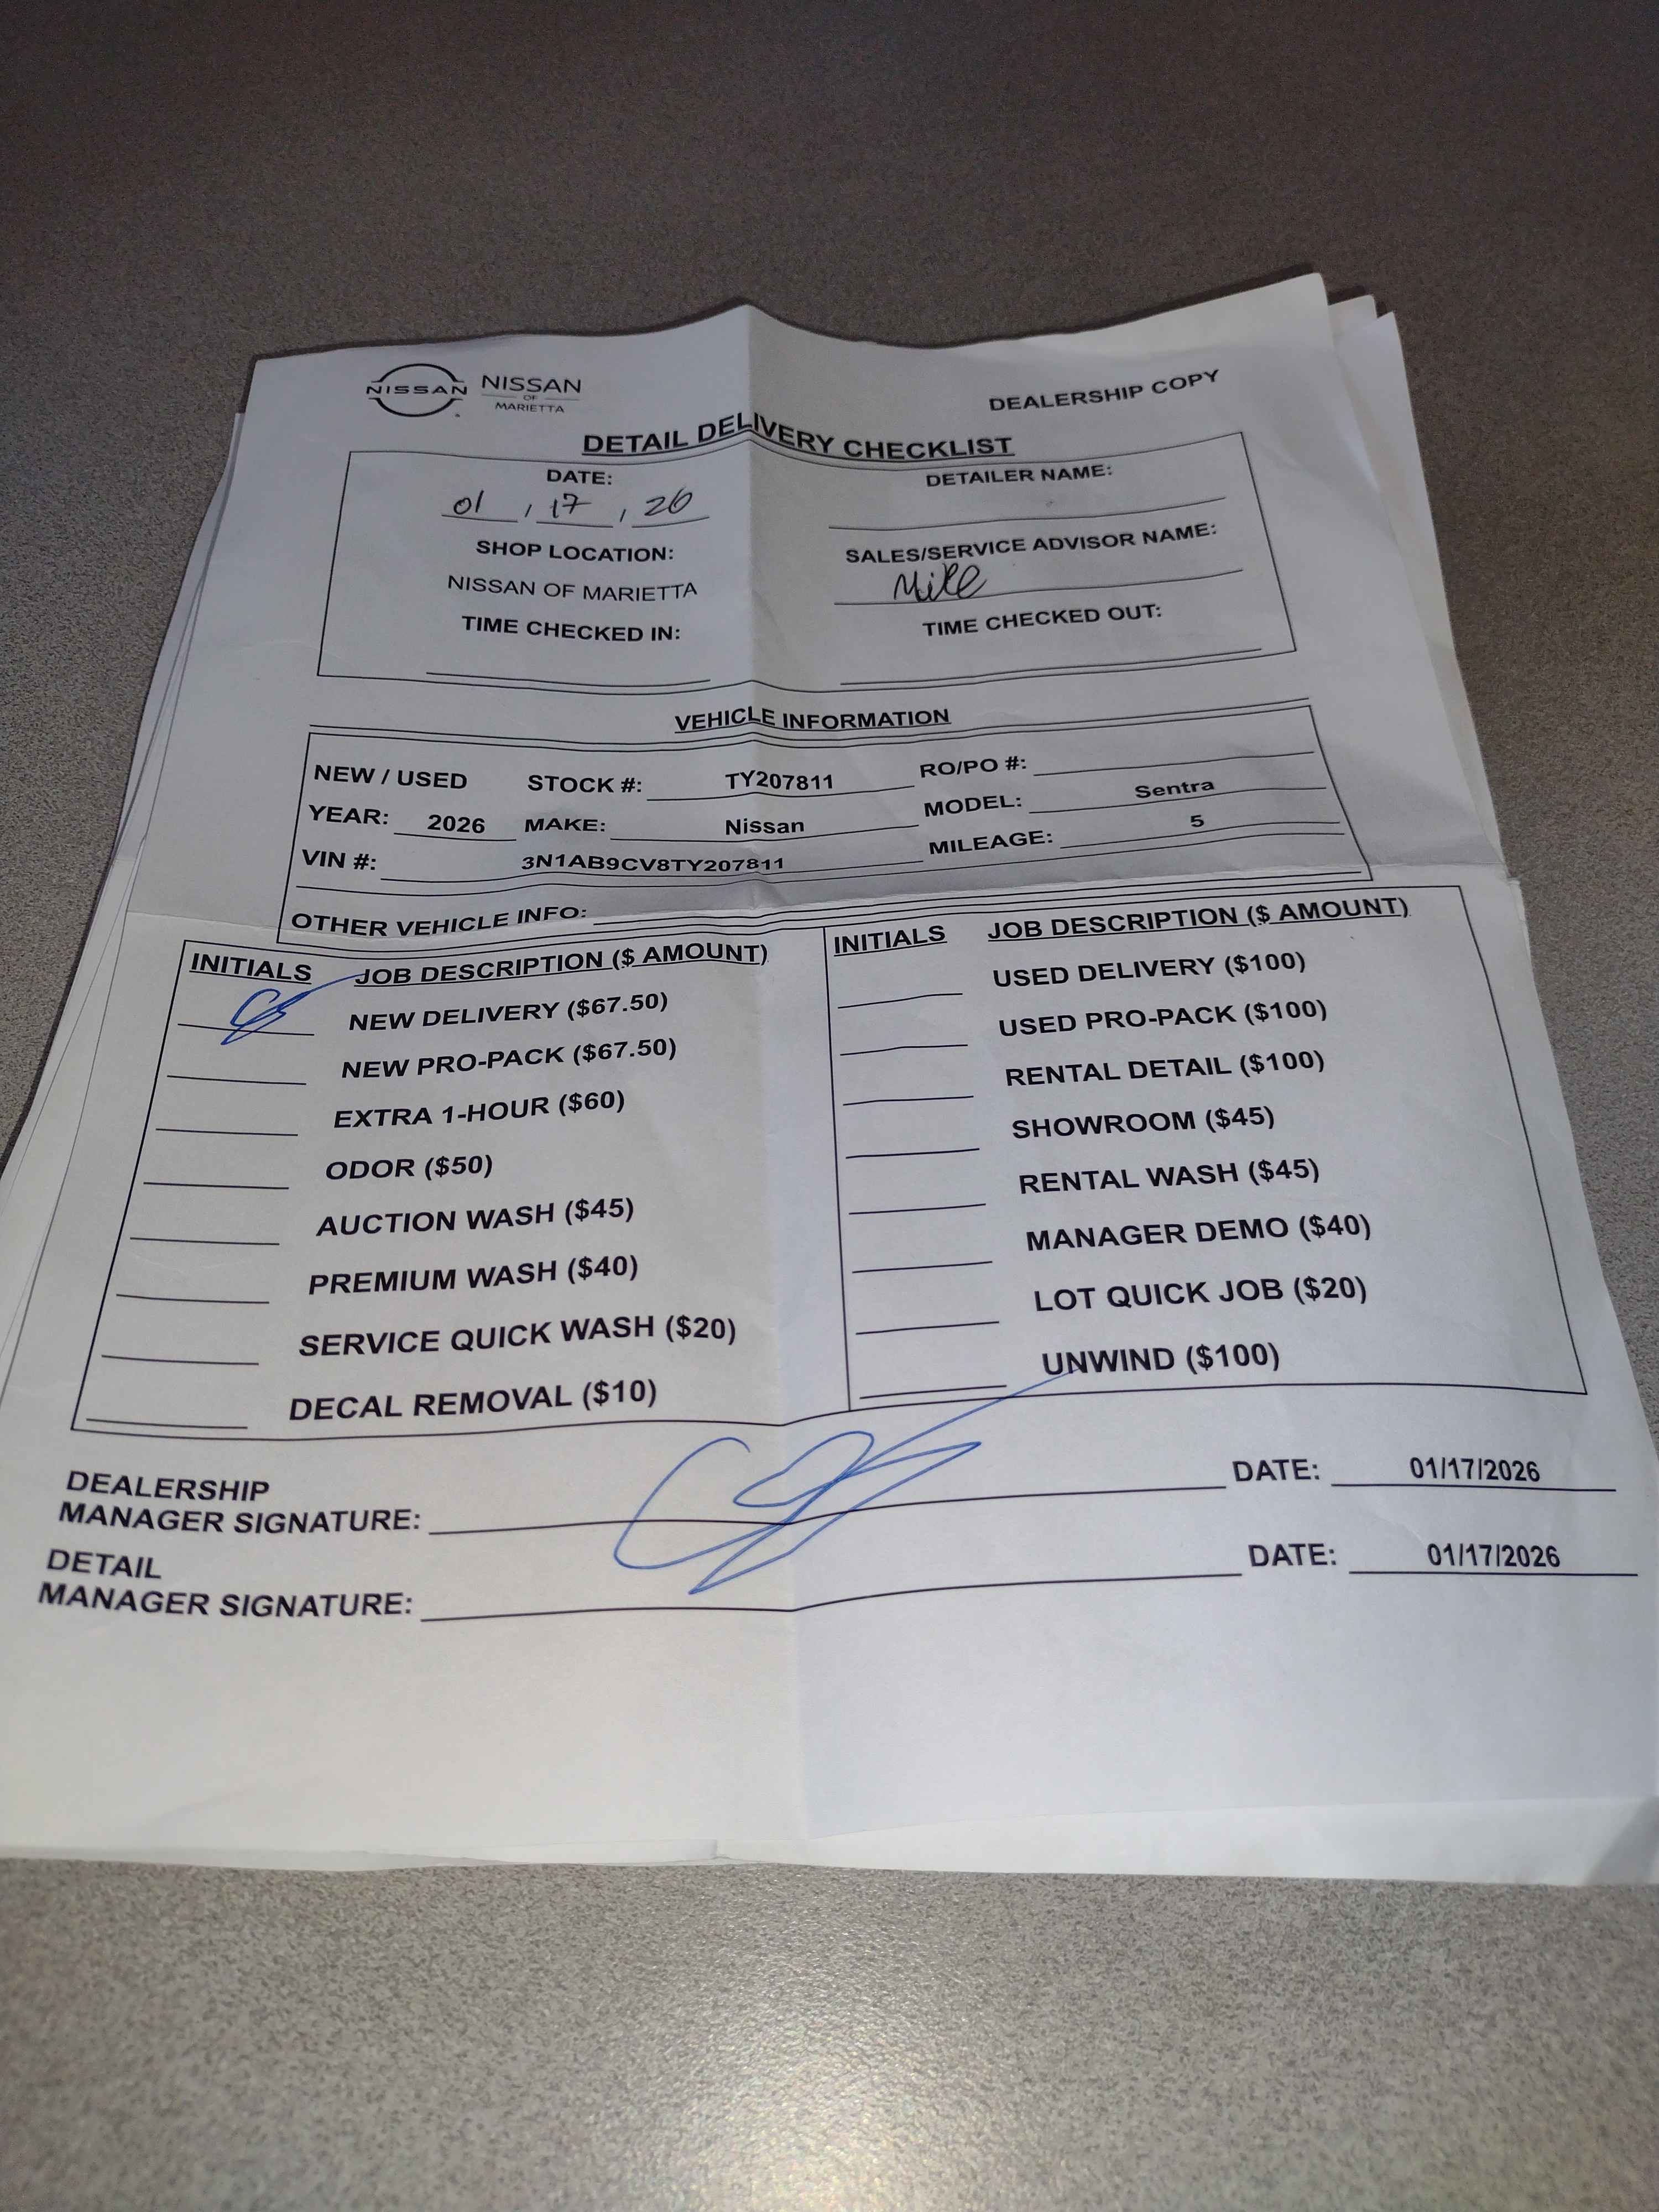 NISSAN NISSAN OF MARIETTA
DEALERSHIP COPY
DETAIL DELIVERY CHECKLIST
DATE:
01 / 17 / 26
SHOP LOCATION:
NISSAN OF MARIETTA
TIME CHECKED IN:
DETAILER NAME:
SALES/SERVICE ADVISOR NAME:
Mike
TIME CHECKED OUT:
VEHICLE INFORMATION
NEW / USED STOCK #: TY207811 RO/PO #:
YEAR: 2026 MAKE: Nissan MODEL: Sentra
VIN #: 3N1AB9CV8TY207811 MILEAGE: 5
OTHER VEHICLE INFO:
INITIALS JOB DESCRIPTION ($ AMOUNT)
NEW DELIVERY ($67.50)
NEW PRO-PACK ($67.50)
EXTRA 1-HOUR ($60)
ODOR ($50)
AUCTION WASH ($45)
PREMIUM WASH ($40)
SERVICE QUICK WASH ($20)
DECAL REMOVAL ($10)
INITIALS JOB DESCRIPTION ($ AMOUNT)
USED DELIVERY ($100)
USED PRO-PACK ($100)
RENTAL DETAIL ($100)
SHOWROOM ($45)
RENTAL WASH ($45)
MANAGER DEMO ($40)
LOT QUICK JOB ($20)
UNWIND ($100)
DEALERSHIP
MANAGER SIGNATURE: DATE: 01/17/2026
DETAIL
MANAGER SIGNATURE: DATE: 01/17/2026